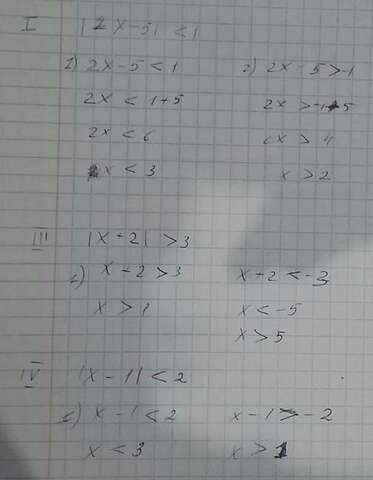 I |2x-5| < 1
1) 2x-5 < 1 2) 2x-5 > -1
2x < 1+5 2x > -1+5
2x < 6 2x > 4
x < 3 x > 2
III |x+2| > 3
1) x+2 > 3 x+2 < -3
x > 1 x < -5
x > 5
IV |x-1| < 2
1) x-1 < 2 x-1 > -2
x < 3 x > 1